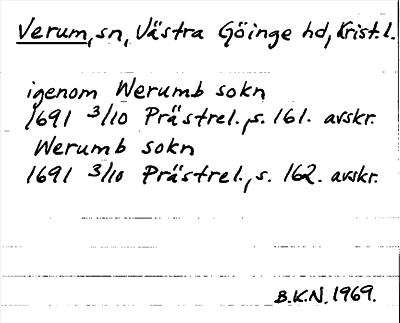 Verum, sn, Västra Göinge hd, Krist.l.
igenom Werumb sokn
1691 3/10 Prästrel., s. 161. avskr.
Werumb sokn
1691 3/10 Prästrel., s. 162. avskr.
B.K.N. 1969.